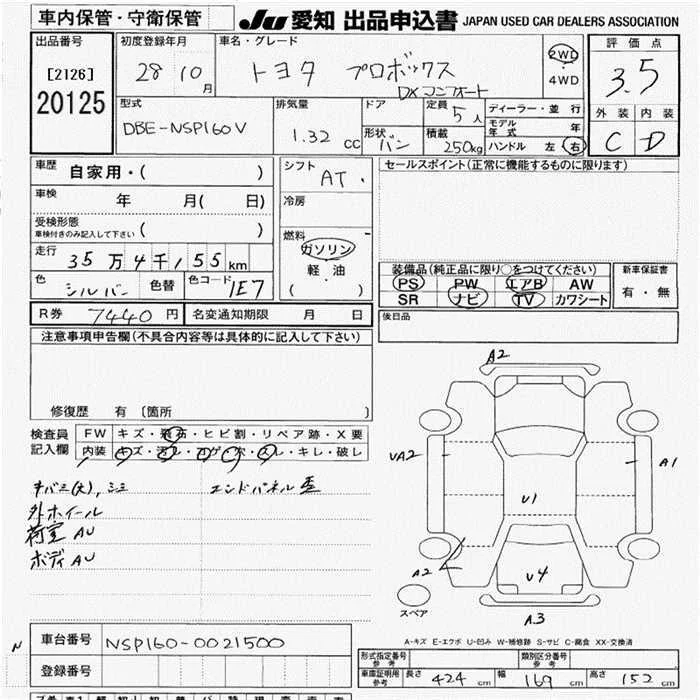 車内保管・守衛保管
JU 愛知 出品申込書 JAPAN USED CAR DEALERS ASSOCIATION
出品番号
[2126]
20125
初度登録年月
28 10月
車名・グレード
トヨタ プロボックス
DXコンフォート
2WD
・
4WD
評価点
3.5
外装 内装
C D
型式
DBE-NSP160V
排気量
1.32 cc
ドア
形状 バン
定員 5人
積載 250kg
ディーラー・並行
モデル年式 年
ハンドル 左 右
車歴 自家用・( )
車検 年 月( 日)
受検形態
車検付きのみ記入して下さい ( )
走行 35万4千155km
色 シルバー 色替 色コード 1E7
シフト
AT.
冷房
燃料
ガソリン
軽・油
( )
セールスポイント(正常に機能するものに限ります)
装備品(純正品に限り○をつけてください)
PS PW エアB AW
SR ナビ TV カワシート
新車保証書
有・無
R券 7440円 名変通知期限 月 日
後日品
注意事項申告欄(不具合内容等は具体的に記入して下さい)
修復歴 有 〔箇所 〕
検査員記入欄
FW キズ・飛石・ヒビ割・リペア跡・X要
内装 キズ・汚レ・コゲ・穴・スレ・キレ・破レ
キバミ(大), シミ エンドパネル歪
外ホイール
荷室AU
ボディAU
A2
UA2
A1
U1
A2
U4
A3
スペア
A-キズ E-エクボ U-凹み W-補修跡 S-サビ C-腐食 XX-交換済
N
車台番号 NSP160-0021500
登録番号
型式指定番号 参考
類別区分番号 参考
車庫証明用 参考 長さ 424 cm 幅 169 cm 高さ 152 cm